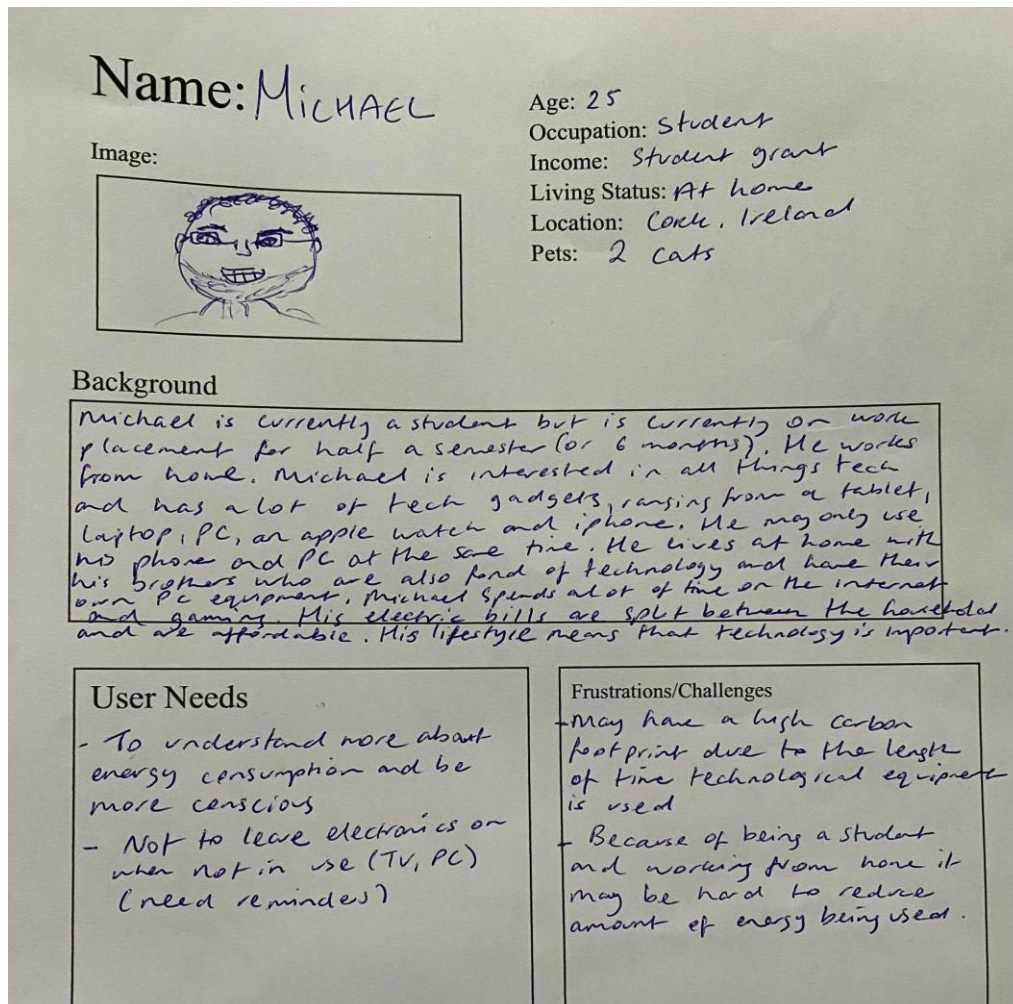 Name: MICHAEL
Image:
Age: 25
Occupation: Student
Income: Student grant
Living Status: At home
Location: Cork, Ireland
Pets: 2 cats
Background
Michael is currently a student but is currently on work
placement for half a semester (or 6 months). He works
from home. Michael is interested in all things tech
and has a lot of tech gadgets, ranging from a tablet,
laptop, PC, an apple watch and iphone. He may only use
his phone and PC at the same time. He lives at home with
his brothers who are also fond of technology and have their
own PC equipment. Michael spends a lot of time on the internet
and gaming. His electric bills are split between the household
and are affordable. His lifestyle means that technology is important.
User Needs
- To understand more about
energy consumption and be
more conscious
- Not to leave electronics on
when not in use (TV, PC)
(need reminders)
Frustrations/Challenges
- May have a high carbon
footprint due to the length
of time technological equipment
is used
- Because of being a student
and working from home it
may be hard to reduce
amount of energy being used.